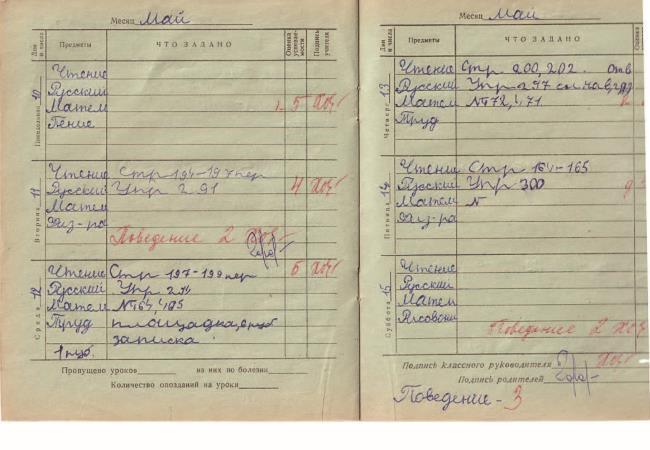 Месяц Май
Дни и числа Предметы ЧТО ЗАДАНО Оценка успеваемости Подпись учителя
Понедельник 10
Чтение
Русский
Матем 5
Пение
Вторник 11
Чтение Стр 194-197 пер
Русский Упр 291 4
Матем
Физ-ра
Поведение 2
Среда 12
Чтение Стр 197-199 пер 5
Русский Упр
Матем №164,
Труд площадка,
записка
Пропущено уроков из них по болезни
Количество опозданий на уроки
Месяц Май
Дни и числа Предметы ЧТО ЗАДАНО Оценка
Четверг 13
Чтение Стр 200, 202. отв
Русский Упр 297
Матем
Труд
Пятница 14
Чтение Стр 164-165
Русский Упр 300
Матем №
Физ-ра
Суббота 15
Чтение
Русский
Матем
Рисовани
Поведение 2
Подпись классного руководителя
Подпись родителей
Поведение - 3